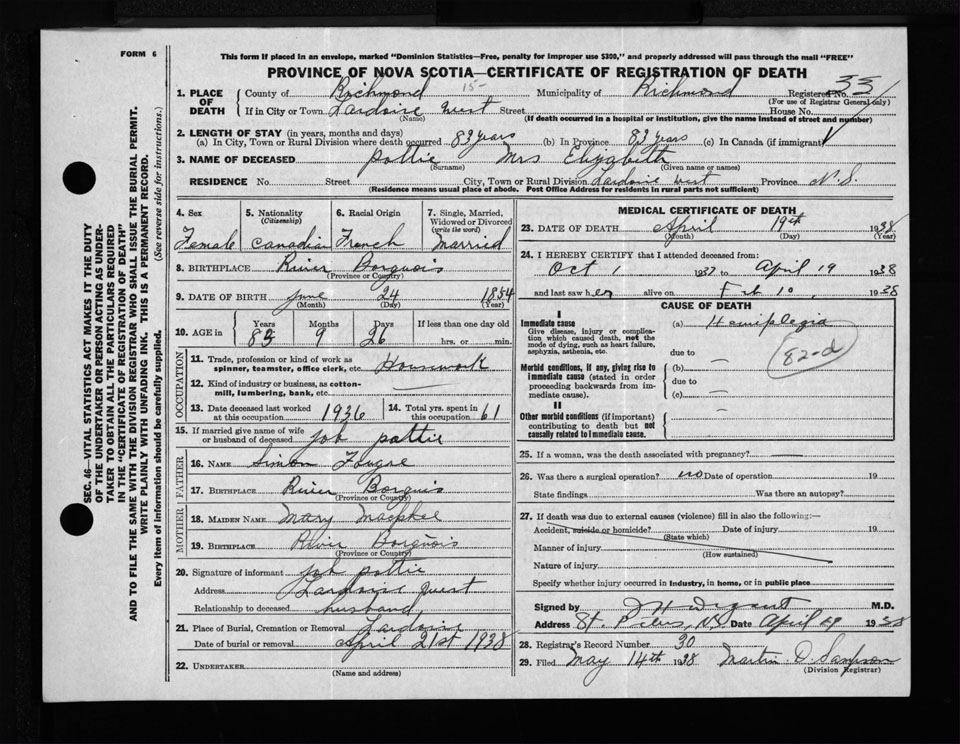 FORM 6
This form if placed in an envelope, marked "Dominion Statistics—Free, penalty for improper use $300," and properly addressed will pass through the mail "FREE"
PROVINCE OF NOVA SCOTIA—CERTIFICATE OF REGISTRATION OF DEATH
1. PLACE OF DEATH County of Richmond 15- Municipality of Richmond Registered No. 33
(For use of Registrar General only)
If in City or Town Lardoise West Street House No.
(Name) (If death occurred in a hospital or institution, give the name instead of street and number)
2. LENGTH OF STAY (in years, months and days)
(a) In City, Town or Rural Division where death occurred 83 years (b) In Province 83 years (c) In Canada (if immigrant)
3. NAME OF DECEASED Pottie Mrs Elizabeth
(Surname) (Given name or names)
RESIDENCE No. Street City, Town or Rural Division Lardoise West Province N.S.
(Residence means usual place of abode. Post Office Address for residents in rural parts not sufficient)
4. Sex 5. Nationality (Citizenship) 6. Racial Origin 7. Single, Married, Widowed or Divorced (write the word)
Female Canadian French Married
8. BIRTHPLACE River Borguois
(Province or Country)
9. DATE OF BIRTH June 24 1854
(Month) (Day) (Year)
10. AGE in Years Months Days If less than one day old
83 9 26 hrs. or min.
OCCUPATION
11. Trade, profession or kind of work as spinner, teamster, office clerk, etc. Housework
12. Kind of industry or business, as cotton-mill, lumbering, bank, etc.
13. Date deceased last worked at this occupation 1936 14. Total yrs. spent in this occupation 61
15. If married give name of wife or husband of deceased Job Pottie
FATHER
16. NAME Simon Fougre
17. BIRTHPLACE River Borguis
(Province or Country)
MOTHER
18. MAIDEN NAME Mary Macphee
19. BIRTHPLACE River Borguois
(Province or Country)
20. Signature of informant Job Pottie
Address Lardoise West
Relationship to deceased husband
21. Place of Burial, Cremation or Removal Lardoise
Date of burial or removal April 21st 1938
22. UNDERTAKER
(Name and address)
MEDICAL CERTIFICATE OF DEATH
23. DATE OF DEATH April 19th 1938
(Month) (Day) (Year)
24. I HEREBY CERTIFY that I attended deceased from:
Oct 1 1937 to April 19 1938
and last saw her alive on Feb 10, 1938
CAUSE OF DEATH
I
Immediate cause
Give disease, injury or complication which caused death, not the mode of dying, such as heart failure, asphyxia, asthenia, etc.
(a) Hemiplegia
82-d
due to
Morbid conditions, if any, giving rise to immediate cause (stated in order proceeding backwards from immediate cause).
(b)
due to
(c)
II
Other morbid conditions (if important) contributing to death but not causally related to immediate cause.
25. If a woman, was the death associated with pregnancy?
26. Was there a surgical operation? no Date of operation 19
State findings Was there an autopsy?
27. If death was due to external causes (violence) fill in also the following:—
Accident, suicide or homicide? Date of injury 19
(State which)
Manner of injury
(How sustained)
Nature of injury
Specify whether injury occurred in industry, in home, or in public place
Signed by M.D.
Address St. Peters, N.S. Date April 29 1938
28. Registrar's Record Number 30
29. Filed May 14th 1938 Martin D. Sampson
(Division Registrar)
SEC. 46—VITAL STATISTICS ACT MAKES IT THE DUTY
OF THE UNDERTAKER OR PERSON ACTING AS UNDER-
TAKER TO OBTAIN ALL THE PARTICULARS REQUIRED
IN THE "CERTIFICATE OF REGISTRATION OF DEATH"
AND TO FILE THE SAME WITH THE DIVISION REGISTRAR WHO SHALL ISSUE THE BURIAL PERMIT.
WRITE PLAINLY WITH UNFADING INK. THIS IS A PERMANENT RECORD.
Every item of information should be carefully supplied. (See reverse side for instructions.)